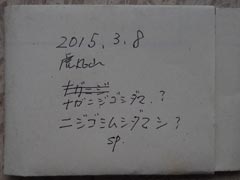 2015.3.8
虎山
ナガニジ
ナガニジゴミダマ.?
ニジゴミムシダマシ?
sp.